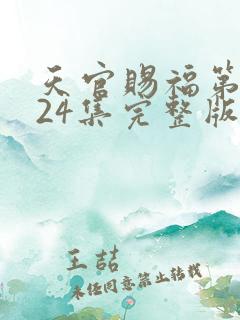 天官赐福第
24集完整版
王喆
未经同意禁止转载